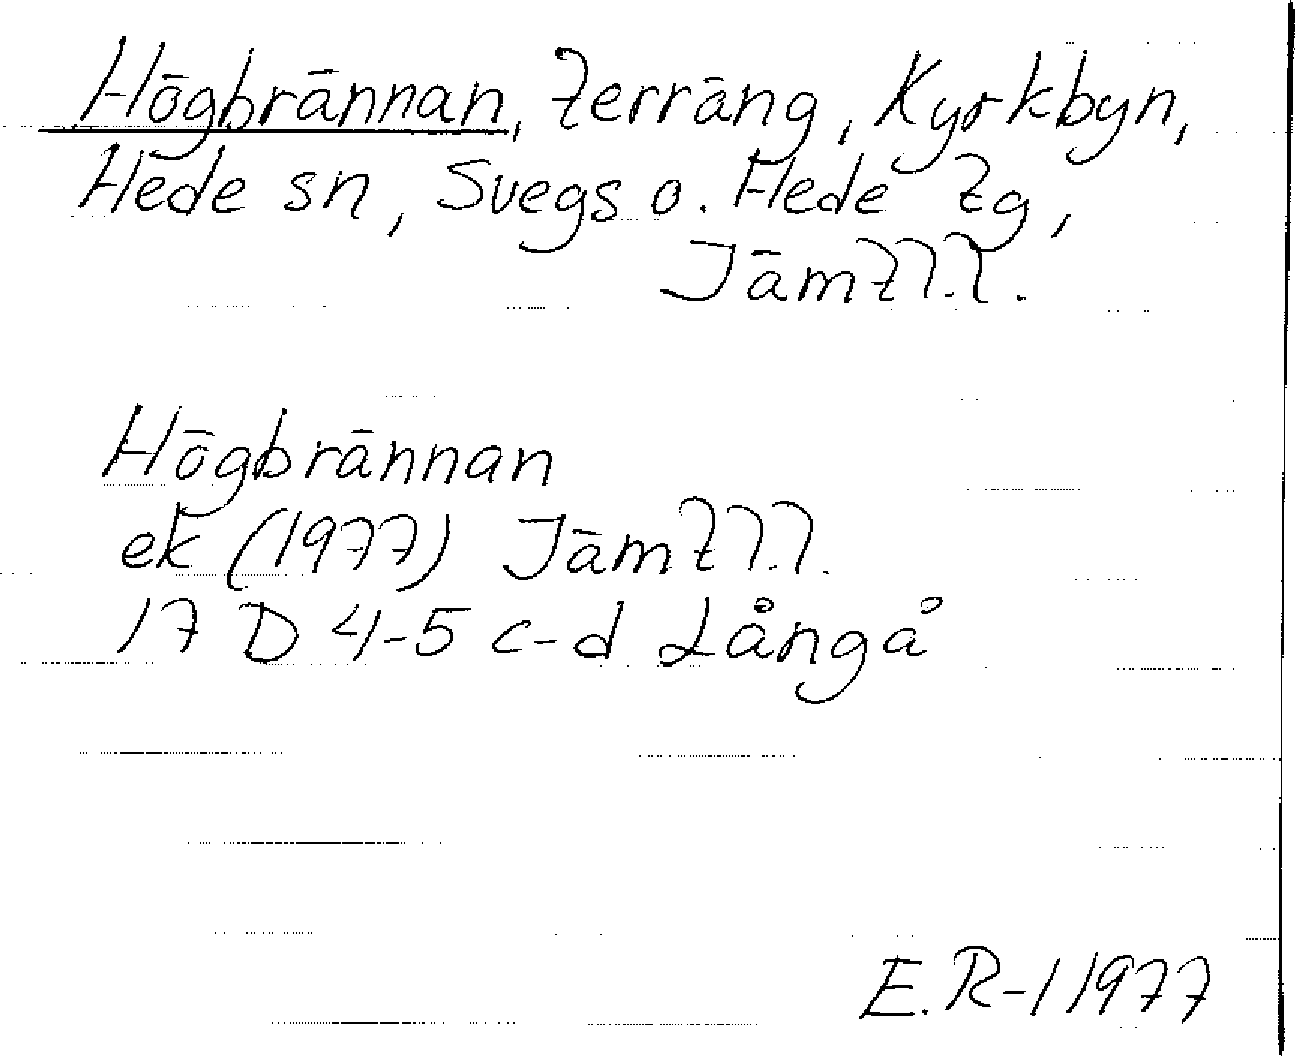 Högbrännan, terräng, Kyrkbyn,
Hede sn, Svegs o. Hede tg,
Jämtl.l.
Högbrännan
ek (1977) Jämtl.l.
17 D 4-5 c-d Långå
E.R-l 1977